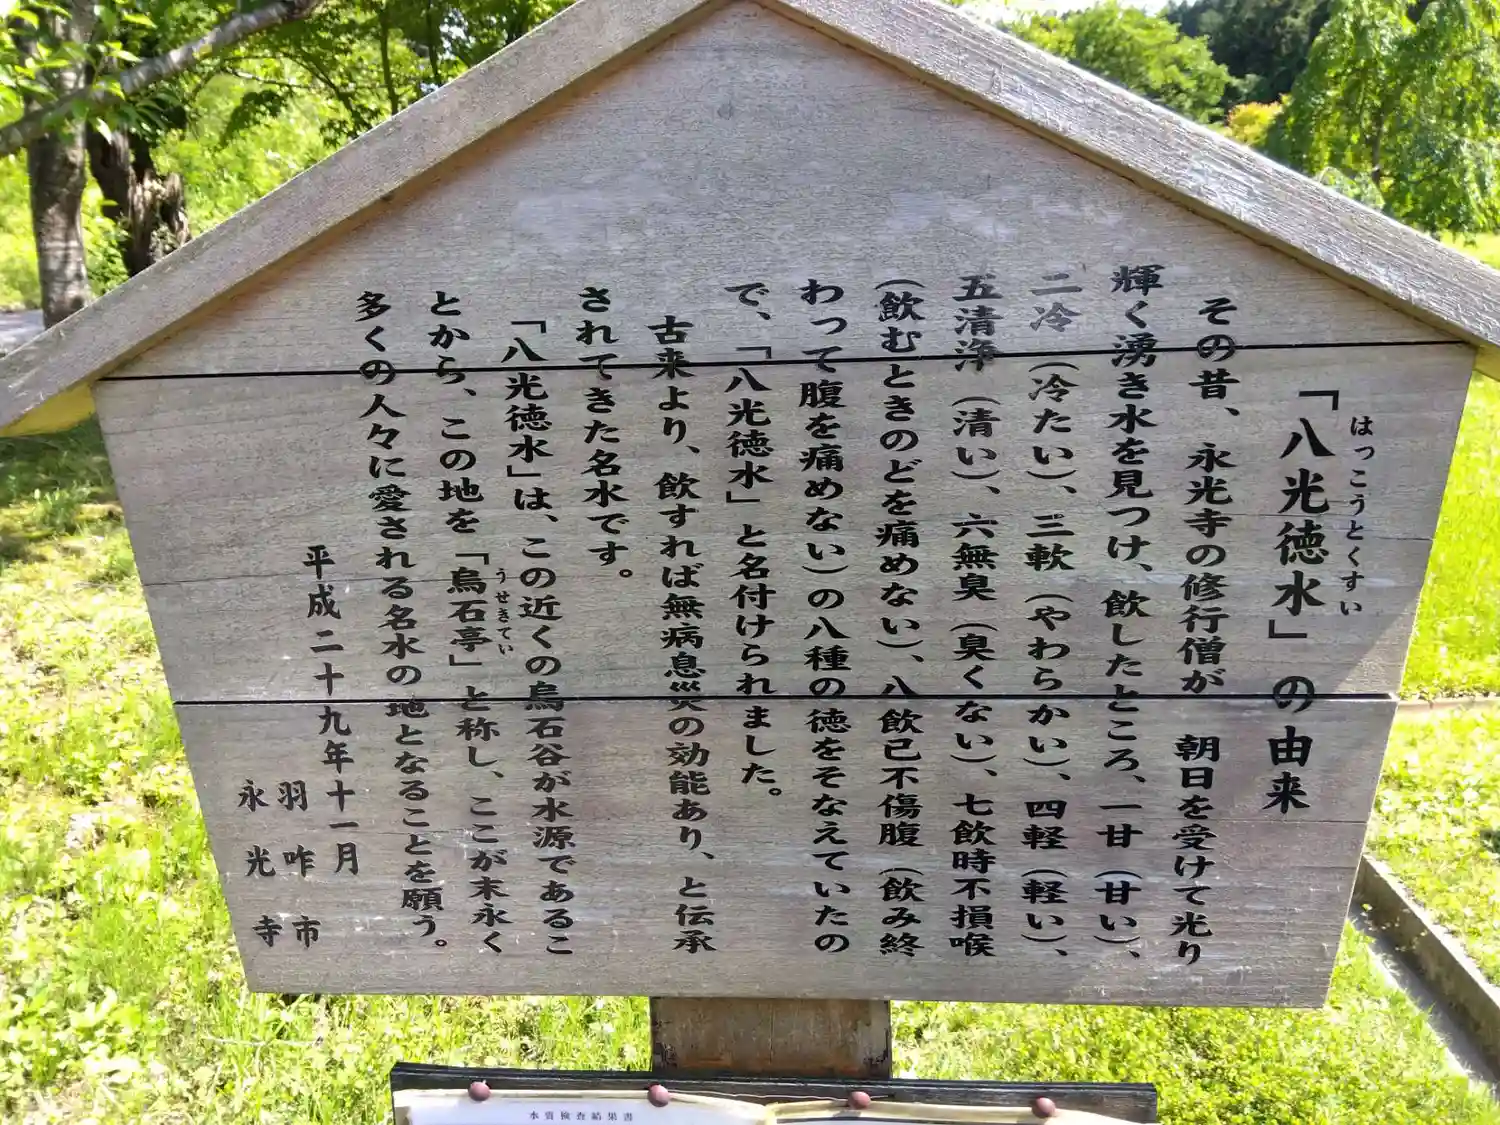 はっこうとくすい
「八光徳水」の由来
その昔、永光寺の修行僧が 朝日を受けて光り
輝く湧き水を見つけ、飲したところ、一甘（甘い）、
二冷（冷たい）、三軟（やわらかい）、四軽（軽い）、
五清浄（清い）、六無臭（臭くない）、七飲時不損喉
（飲むときのどを痛めない）、八飲已不傷腹（飲み終
わって腹を痛めない）の八種の徳をそなえていたの
で、「八光徳水」と名付けられました。
古来より、飲すれば無病息災の効能あり、と伝承
されてきた名水です。
「八光徳水」は、この近くの烏石谷が水源であるこ
うせきてい
とから、この地を「烏石亭」と称し、ここが末永く
多くの人々に愛される名水の地となることを願う。
平成二十九年十一月
羽咋市
永光寺
水質検査結果書